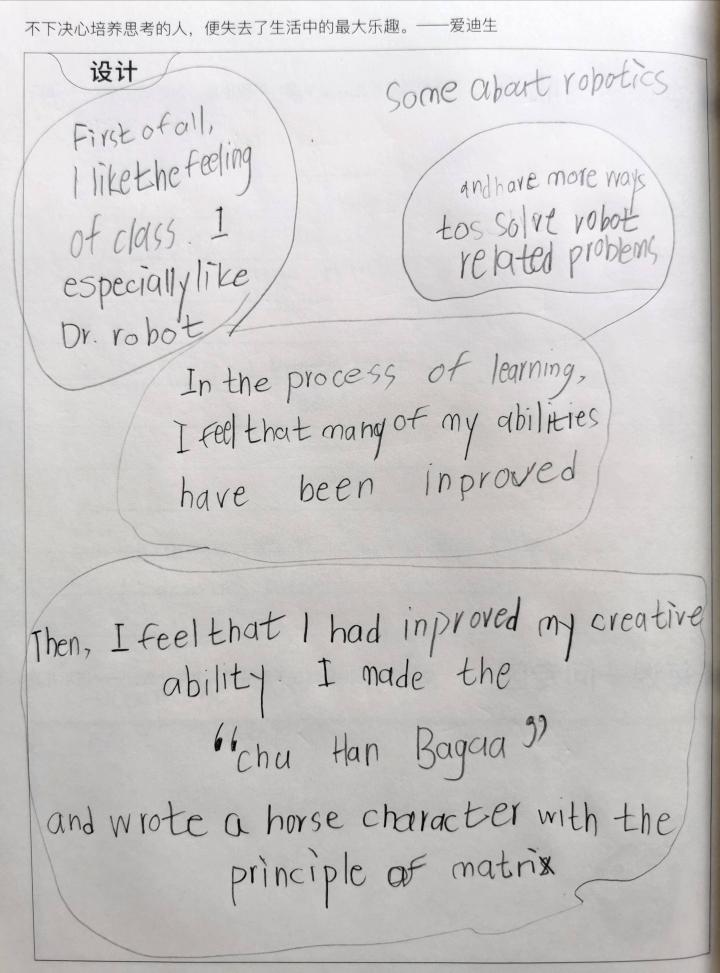 不下决心培养思考的人，便失去了生活中的最大乐趣。——爱迪生
设计
Some about robotics
First of all,
I like the feeling
of class. I
especially like
Dr. robot
and have more ways
tos solve robot
related problems
In the process of learning,
I feel that many of my abilities
have been inproved
Then, I feel that I had inproved my creative
ability I made the
“chu Han Bagaa”
and wrote a horse character with the
principle of matrix